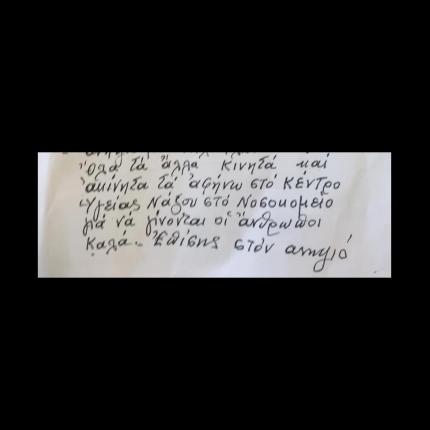 ὅλα τά ἄλλα κινητά καί
ἀκίνητα τά ἀφήνω στό Κέντρο
Ὑγείας Νάξου στό Νοσοκομείο
γιά νά γίνονται οἱ ἄνθρωποι
καλά. Ἐπίσης στόν ανηψιό